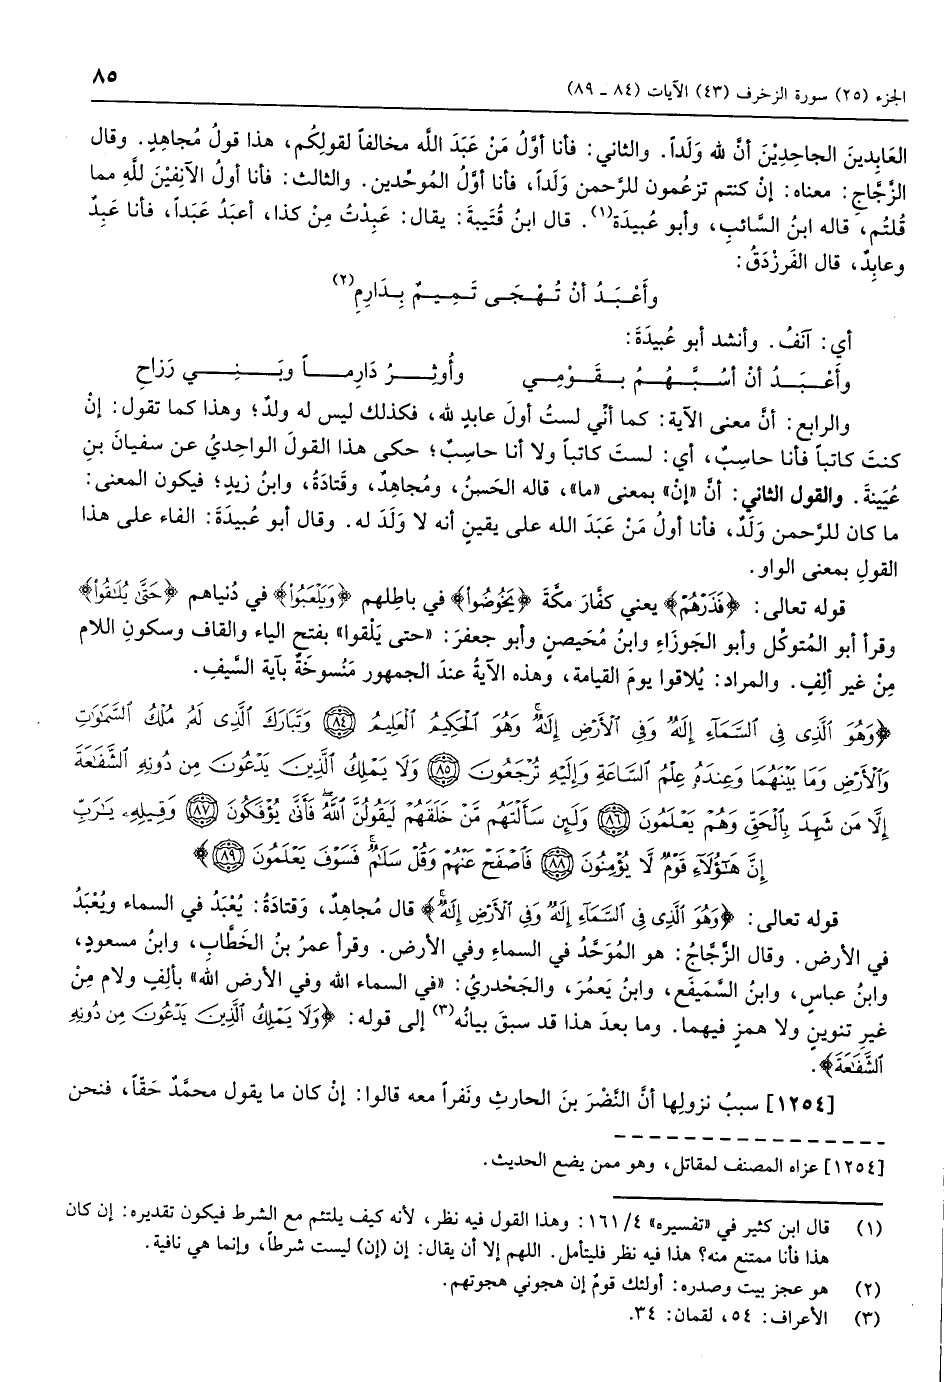 الجزء (٢٥) سورة الزخرف (٤٣) الآيات (٨٤ ـ ٨٩)
٨٥
العَابِدينَ الجاحِدِيْنَ أنَّ لله وَلَداً. والثاني: فأنا أوَّلُ مَنْ عَبَدَ اللَّه مخالفاً لقولِكُم، هذا قولُ مُجاهِدٍ. وقال
الزَّجَّاج: معناه: إنْ كنتم تزعُمون للرَّحمن وَلَداً، فأنا أوَّلُ المُوحِّدين. والثالث: فأنا أولُ الآنِفِيْنَ للَّهِ مما
قُلتُم، قاله ابنُ السَّائبِ، وأبو عُبيدَة(١). قال ابنُ قُتَيبة: يقال: عَبِدْتُ مِنْ كذا، أعبَدُ عَبَداً، فأنا عَبِدٌ
وعابِدٌ، قال الفَرزْدَقُ:
وأَعْـبَـدُ أنْ تُـهْـجَـى تَـمِـيـمٌ بِـدَارِمِ(٢)
أي: آنَفُ. وأنشد أبو عُبيدَةَ:
وأَعْـبَـدُ أنْ أسُـبَّـهُـمُ بـقَـوْمِـي وأُوثِـرُ دَارِمـاً وبَـنِـي رَزَاحِ
والرابع: أنَّ معنى الآية: كما أنِّي لستُ أولَ عابدٍ لله، فكذلك ليس له ولدٌ؛ وهذا كما تقول: إنْ
كنتَ كاتباً فأنا حاسِبٌ، أي: لستَ كاتباً ولا أنا حاسِبٌ؛ حكى هذا القولَ الواحِديُّ عن سفيانَ بنِ
عُيَينةَ. والقول الثاني: أنَّ «إنْ» بمعنى «ما»، قاله الحَسنُ، ومُجاهِدٌ، وقَتادَةُ، وابنُ زيدٍ؛ فيكون المعنى:
ما كان للرَّحمنِ وَلَدٌ، فأنا أولُ مَنْ عَبَدَ الله على يقينٍ أنه لا وَلَدَ له. وقال أبو عُبيدَةَ: الفاء على هذا
القولِ بمعنى الواو.
قوله تعالى: ﴿فَذَرْهُمْ﴾ يعني كفَّارَ مكَّةَ ﴿يَخُوضُوا﴾ في باطِلهم ﴿وَيَلْعَبُوا﴾ في دُنياهم ﴿حَتَّىٰ يُلَٰقُوا﴾
وقرأ أبو المُتوكِّل وأبو الجَوزَاءِ وابنُ مُحَيصنٍ وأبو جعفرَ: «حتى يَلْقوا» بفتح الياء والقاف وسكونِ اللام
مِنْ غير ألِفٍ. والمراد: يُلاقوا يومَ القيامة، وهذه الآيةُ عندَ الجمهور مَنسوخَةٌ بآية السَّيف.
﴿وَهُوَ ٱلَّذِى فِى ٱلسَّمَآءِ إِلَٰهٌ وَفِى ٱلْأَرْضِ إِلَٰهٌ ۚ وَهُوَ ٱلْحَكِيمُ ٱلْعَلِيمُ ﴿٨٤﴾ وَتَبَارَكَ ٱلَّذِى لَهُۥ مُلْكُ ٱلسَّمَٰوَٰتِ
وَٱلْأَرْضِ وَمَا بَيْنَهُمَا وَعِندَهُۥ عِلْمُ ٱلسَّاعَةِ وَإِلَيْهِ تُرْجَعُونَ ﴿٨٥﴾ وَلَا يَمْلِكُ ٱلَّذِينَ يَدْعُونَ مِن دُونِهِ ٱلشَّفَٰعَةَ
إِلَّا مَن شَهِدَ بِٱلْحَقِّ وَهُمْ يَعْلَمُونَ ﴿٨٦﴾ وَلَئِن سَأَلْتَهُم مَّنْ خَلَقَهُمْ لَيَقُولُنَّ ٱللَّهُ ۖ فَأَنَّىٰ يُؤْفَكُونَ ﴿٨٧﴾ وَقِيلِهِۦ يَٰرَبِّ
إِنَّ هَٰٓؤُلَآءِ قَوْمٌ لَّا يُؤْمِنُونَ ﴿٨٨﴾ فَٱصْفَحْ عَنْهُمْ وَقُلْ سَلَٰمٌ ۚ فَسَوْفَ يَعْلَمُونَ ﴿٨٩﴾﴾
قوله تعالى: ﴿وَهُوَ ٱلَّذِى فِى ٱلسَّمَآءِ إِلَٰهٌ وَفِى ٱلْأَرْضِ إِلَٰهٌ ۚ﴾ قال مُجاهِدٌ، وَقتادَةُ: يُعْبَدُ في السماء ويُعْبَدُ
في الأرض. وقال الزَّجَّاجُ: هو المُوَحَّدُ في السماءِ وفي الأرض. وقرأ عمرُ بنُ الخَطَّابِ، وابنُ مسعودٍ،
وابنُ عباسٍ، وابنُ السَّمَيفَع، وابنُ يَعمَرَ، والجَحْدريُّ: «في السماء الله وفي الأرض الله» بألِفٍ ولام مِنْ
غيرِ تنوينٍ ولا همزٍ فيهما. وما بعدَ هذا قد سبقَ بيانُه(٣) إلى قوله: ﴿وَلَا يَمْلِكُ ٱلَّذِينَ يَدْعُونَ مِن دُونِهِ
ٱلشَّفَٰعَةَ﴾.
[١٢٥٤] سببُ نزولِها أنَّ النَّضْرَ بنَ الحارثِ ونَفراً معه قالوا: إنْ كان ما يقول محمَّدٌ حَقّاً، فنحن
[١٢٥٤] عزاه المصنف لمقاتل، وهو ممن يضع الحديث.
(١) قال ابن كثير في «تفسيره» ٤/ ١٦١: وهذا القول فيه نظر، لأنه كيف يلتئم مع الشرط فيكون تقديره: إن كان
هذا فأنا ممتنع منه؟ هذا فيه نظر فليتأمل. اللهم إلا أن يقال: إن (إن) ليست شرطاً، وإنما هي نافية.
(٢) هو عجز بيت وصدره: أولئك قومٌ إن هجوني هجوتهم.
(٣) الأعراف: ٥٤، لقمان: ٣٤.